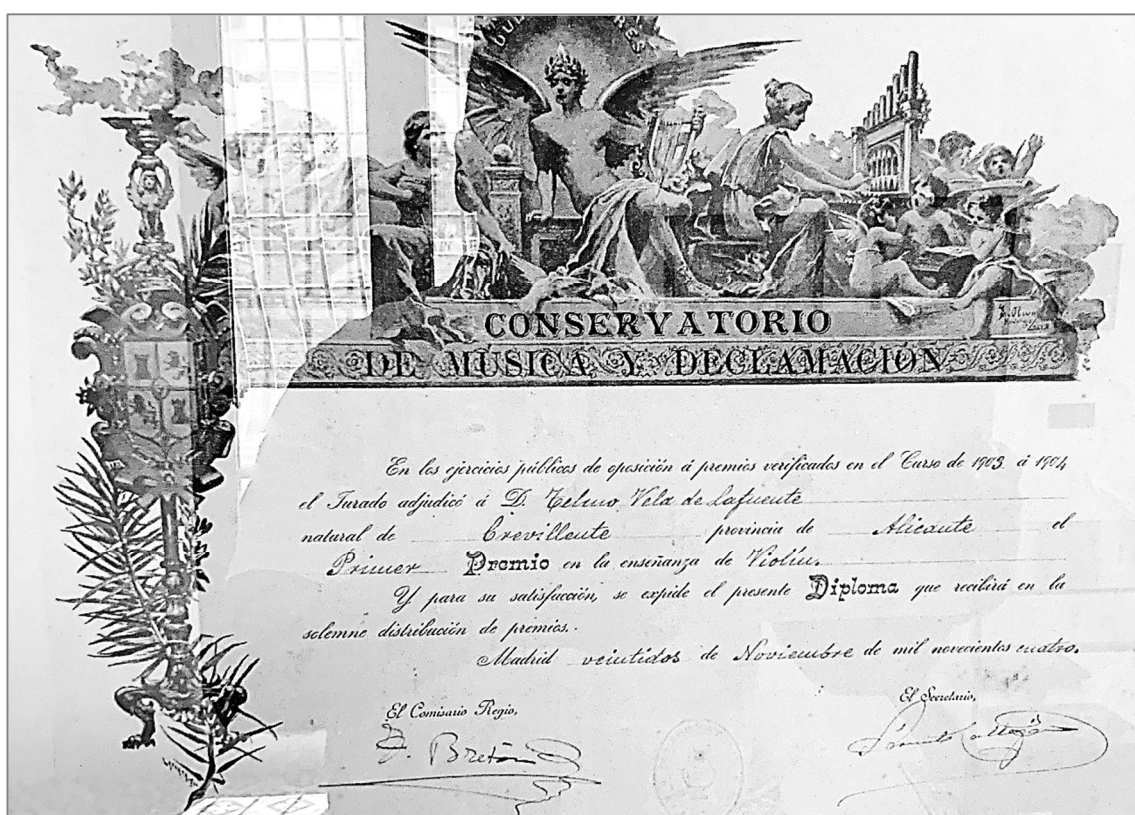 CONSERVATORIO
DE MÚSICA Y DECLAMACIÓN
En los ejercicios públicos de oposición á premios verificados en el Curso de 1903 á 1904
el Jurado adjudicó á D. Telmo Vela de Lafuente
natural de Crevillente provincia de Alicante el
Primer Premio en la enseñanza de Violín.
Y para su satisfacción, se expide el presente Diploma que recibirá en la
solemne distribución de premios.
Madrid veintidos de Noviembre de mil novecientos cuatro.
El Secretario,
El Comisario Regio,
T. Bretón